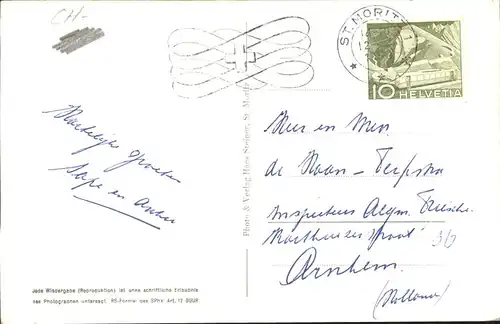 CH-
ST. MORITZ 1
10
HELVETIA
Hartelijke Groeten
Photo & Verlag Hans Steiner, St. Moritz
Heer en Mevr.
de Haan - Terpstra
Inspecteur Algm.
Arnhem
(Holland)
Jede Wiedergabe (Reproduktion) ist ohne schriftliche Erlaubnis
des Photographen untersagt. RS-Formel des SPhV. Art. 17 BGUR